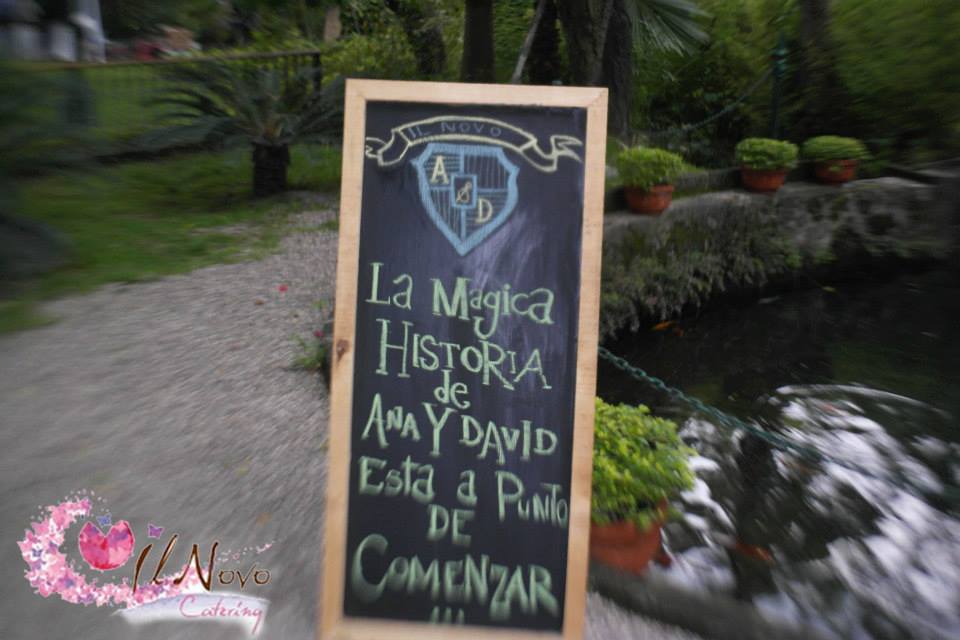 IL NOVO
A
D
La Magica
HISTORIA
de
ANA Y DAVID
Esta a PUNTO
DE
COMENZAR
!!!
Il Novo
Catering